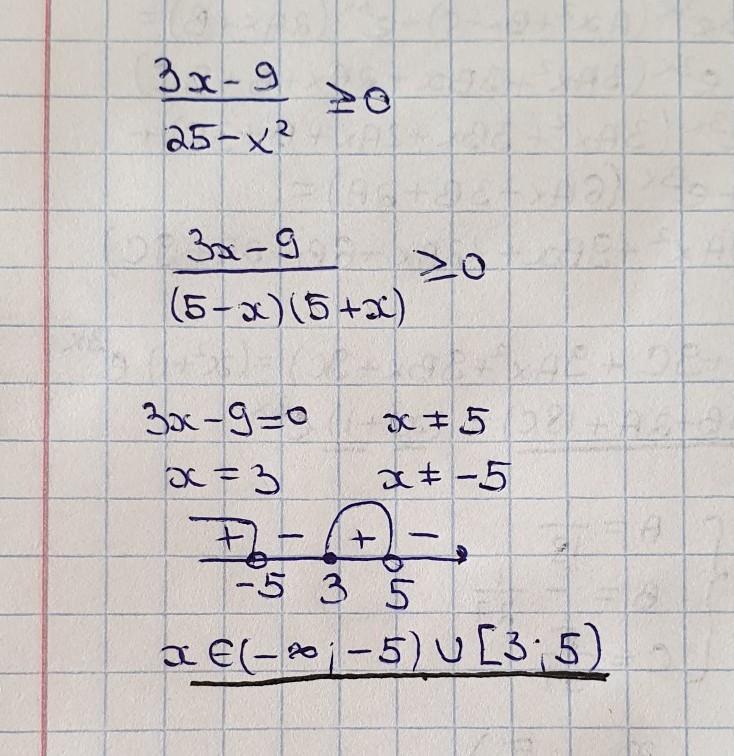 3x-9
25-x² ≥0
3x-9
(5-x)(5+x) ≥0
3x-9=0 x≠5
x=3 x≠-5
+ - + -
-5 3 5
x∈(-∞;-5)∪[3;5)